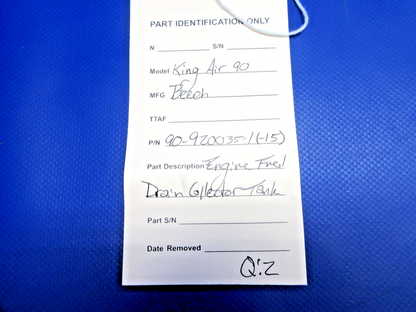 PART IDENTIFICATION ONLY
N S/N
Model King Air 90
MFG Beech
TTAF
P/N 90-920035-1(-15)
Part Description Engine Fuel
Drain Collector Tank
Part S/N
Date Removed
Q:2